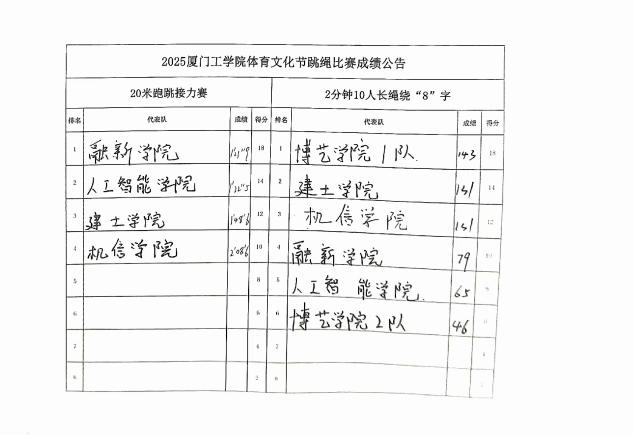 2025厦门工学院体育文化节跳绳比赛成绩公告
20米跑跳接力赛 2分钟10人长绳绕“8”字
排名 代表队 成绩 得分 排名 代表队 成绩 得分
1 融新学院 18 1 博艺学院1队. 143 18
2 人工智能学院 14 2 建土学院 131 14
3 建土学院 1'08"6 12 3 机信学院 131 12
4 机信学院 2'08"6 10 4 融新学院 79 10
5 8 5 人工智能学院. 65
6 6 6 博艺学院2队 46
7 4 7 4
8 2 8